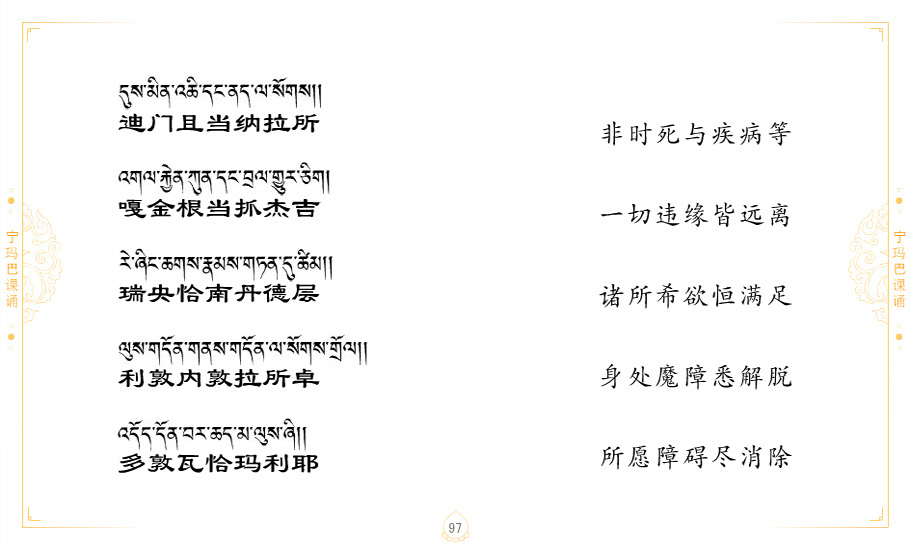 དུས་མིན་འཆི་དང་ནད་ལ་སོགས།།
迪门且当纳拉所
འགལ་རྐྱེན་ཀུན་དང་བྲལ་གྱུར་ཅིག།
嘎金根当抓杰吉
རེ་ཞིང་ཆགས་རྣམས་གཏན་དུ་ཚིམ།།
瑞央恰南丹德层
ལུས་གདོན་གནས་གདོན་ལ་སོགས་གྲོལ།།
利敦内敦拉所卓
འདོད་དོན་བར་ཆད་མ་ལུས་ཞི།།
多敦瓦恰玛利耶
非时死与疾病等
一切违缘皆远离
诸所希欲恒满足
身处魔障悉解脱
所愿障碍尽消除
宁玛巴课诵
宁玛巴课诵
97